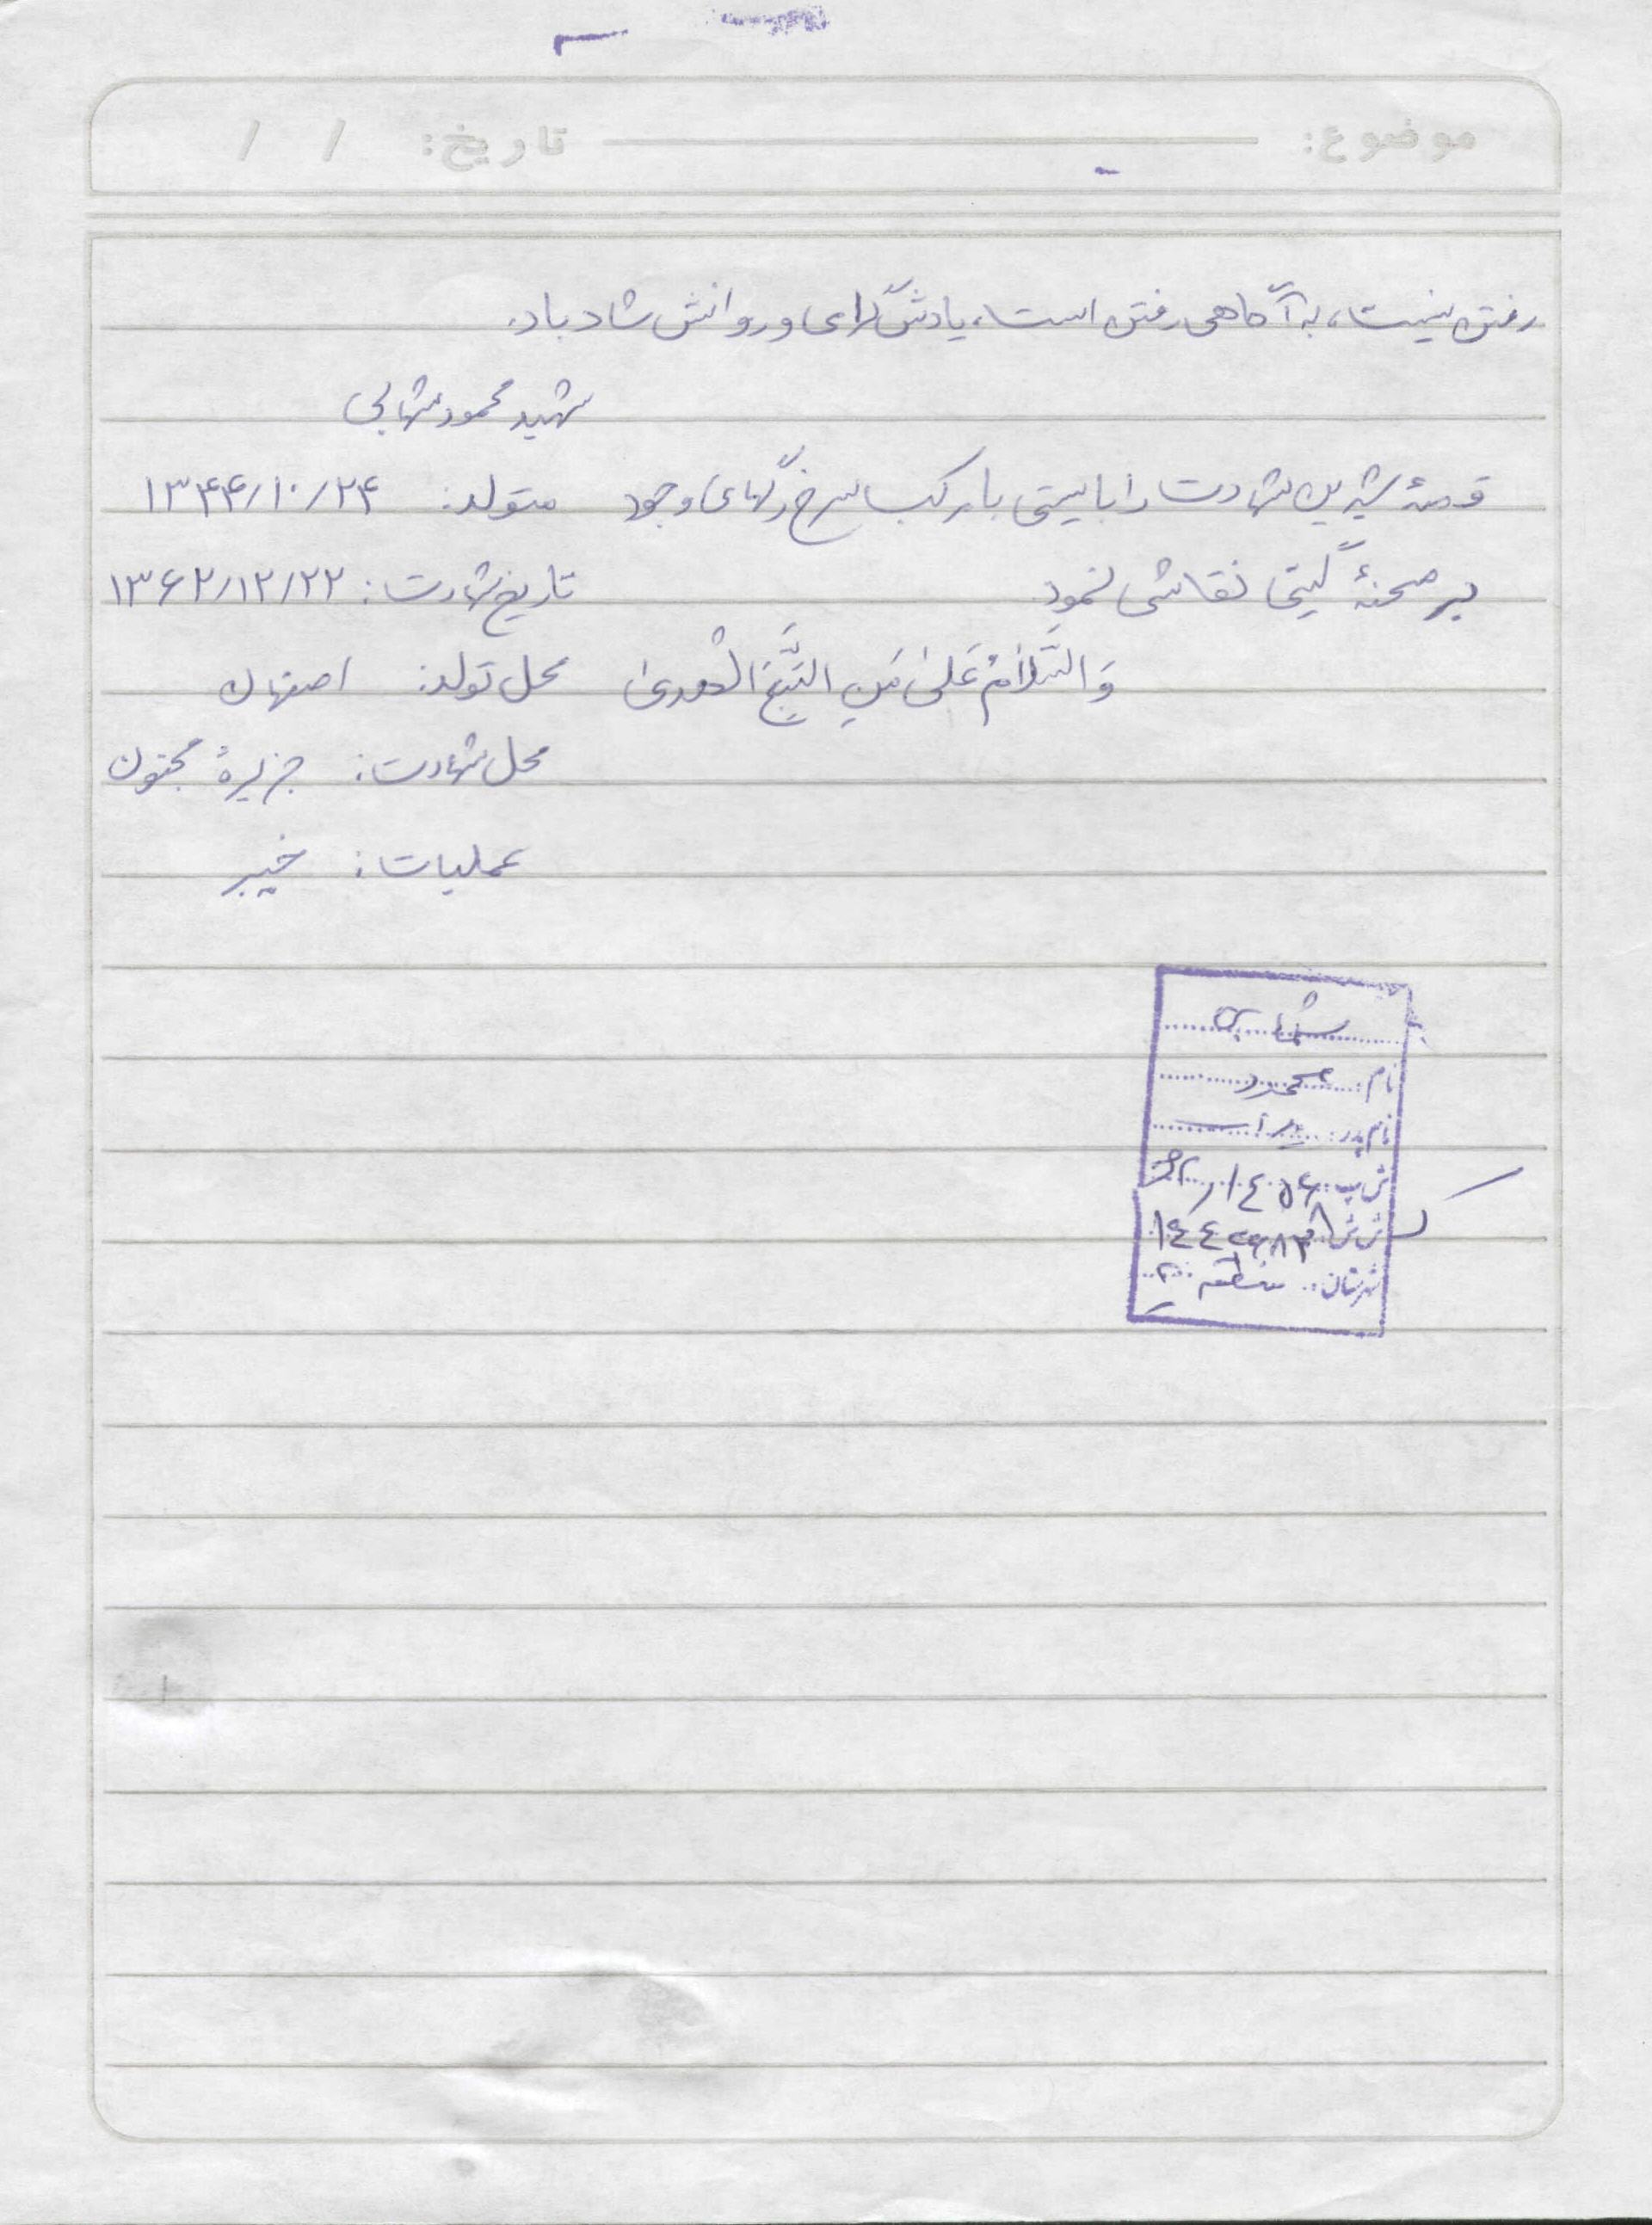 موضوع: تاریخ: / /
رفتن نیست، به آگاهی رفتن است، یادش گرامی و روانش شاد باد.
شهید محمود شهابی
قصهٔ شیرین شهادت را بایستی با مرکب سرخ رگهای وجود متولد: ۱۳۴۴/۱۰/۲۴
بر صحنهٔ گیتی نقاشی نمود تاریخ شهادت: ۱۳۶۲/۱۲/۲۲
وَ السَّلامُ عَلیٰ مَنِ اتَّبَعَ الْهُدیٰ محل تولد: اصفهان
محل شهادت: جزیرهٔ مجنون
عملیات: خیبر
شهابی
نام: محمود
نام پدر:
ش پ:
ش ش:
شهرستان: منطقه